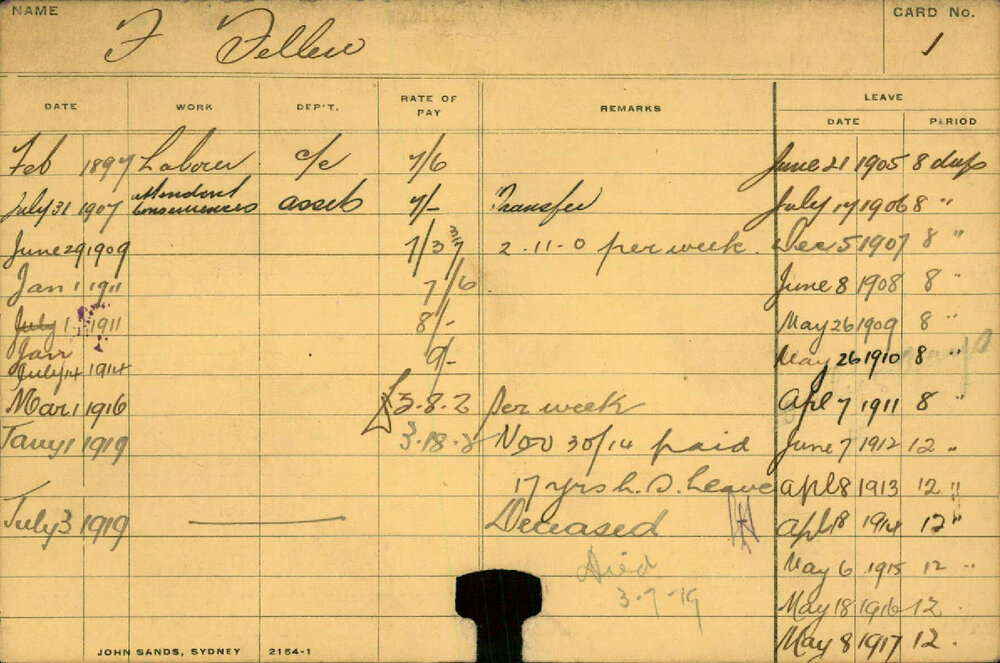 NAME
F Feller
CARD No.
1
DATE WORK DEP'T. RATE OF PAY REMARKS LEAVE
DATE PERIOD
Feb 1897 Laborer c/e 7/6 June 21 1905 8 days
July 31 1907 attendant conveniences asseb 7/- Transfer July 17 1906 8 "
June 29 1909 7/3 2.11.0 per week. Dec 5 1907 8 "
Jan 1 1911 7/6 June 8 1908 8 "
July 1 1911 8/- May 26 1909 8 "
Jan
July 14 1914 9/- May 26 1910 8 "
Mar 1 1916 £3.8.2 per week Apl 7 1911 8 "
Jany 1 1919 3.18.2 Nov 30/14 paid June 7 1912 12 "
17 yrs L.S. Leave apl 8 1913 12 "
July 3 1919 Deceased apl 18 1914 12 "
Died May 6 1915 12 "
3-7-19 May 18 1916 12 .
May 8 1917 12 .
JOHN SANDS, SYDNEY 2154-1